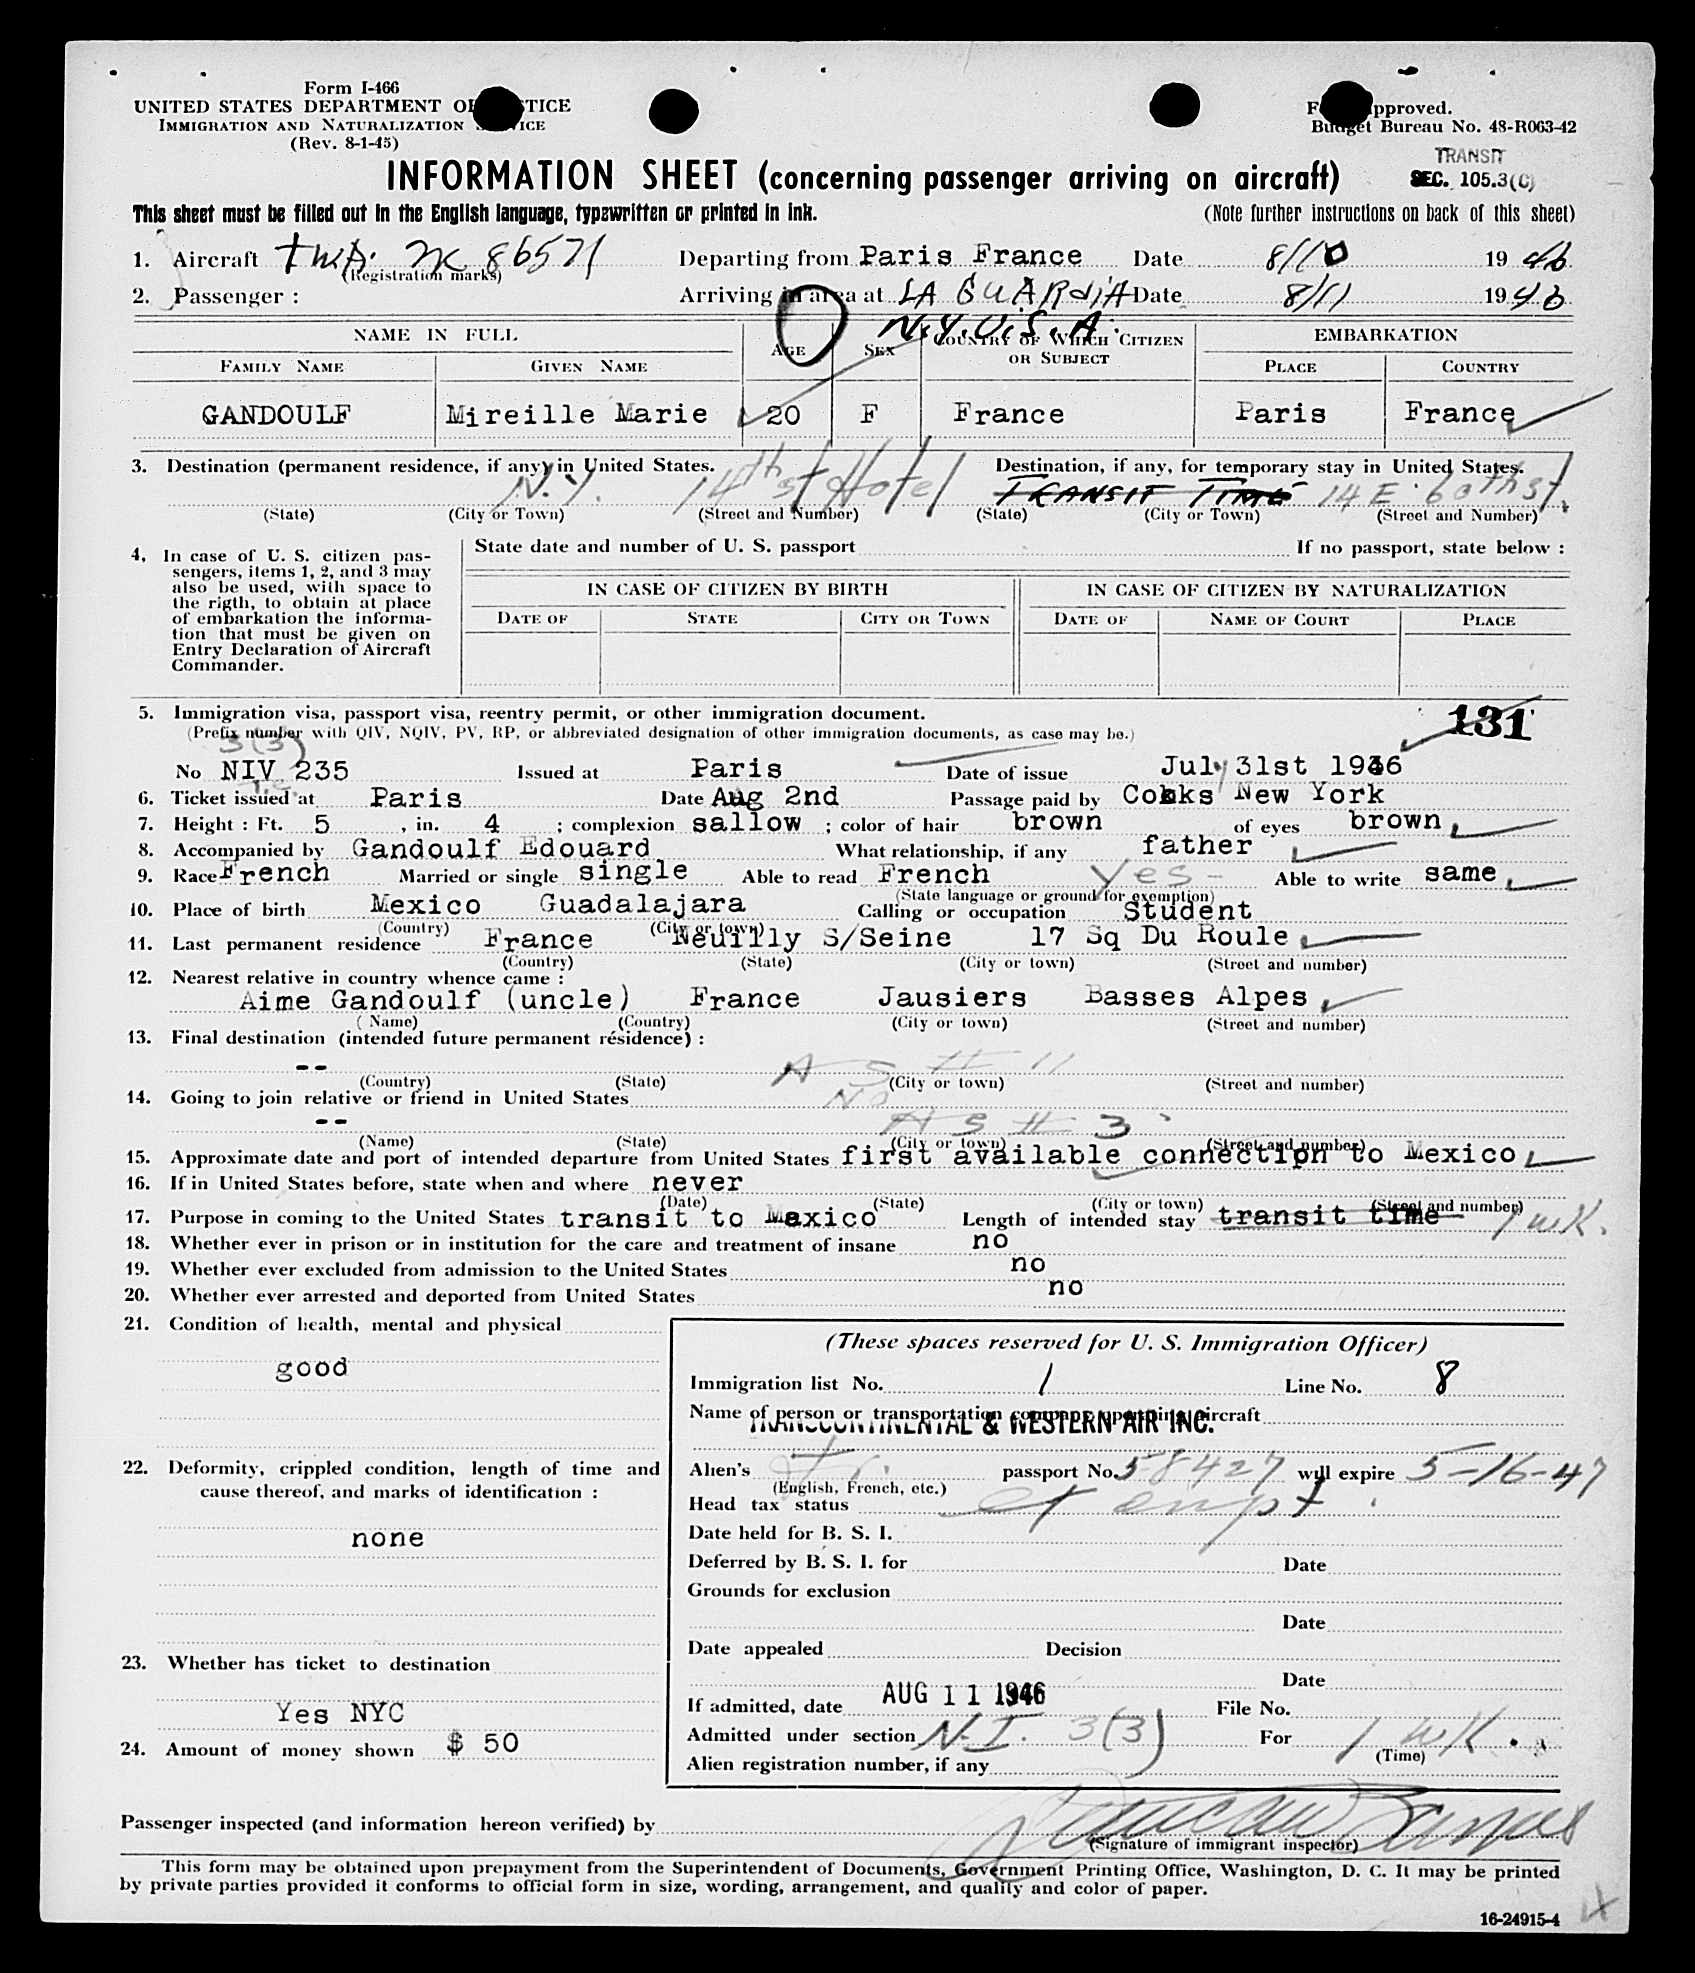 Form I-466
UNITED STATES DEPARTMENT OF JUSTICE
IMMIGRATION AND NATURALIZATION SERVICE
(Rev. 8-1-45)
Form approved.
Budget Bureau No. 43-R063-42
TRANSIT
SEC. 105.3(C)
INFORMATION SHEET (concerning passenger arriving on aircraft)
This sheet must be filled out in the English language, typewritten or printed in ink. (Note further instructions on back of this sheet)
1. Aircraft TWA. NC 86571 Departing from Paris France Date 8/10 1946
(Registration marks)
2. Passenger : Arriving in area at LA GUARdiA Date 8/11 1946
N.Y. U.S.A.
NAME IN FULL AGE SEX COUNTRY OF WHICH CITIZEN OR SUBJECT EMBARKATION
FAMILY NAME GIVEN NAME PLACE COUNTRY
GANDOULF Mireille Marie 20 F France Paris France
3. Destination (permanent residence, if any) in United States. Destination, if any, for temporary stay in United States.
N.Y. 14th st Hotel TRANSIT TIME 14 E 60th st.
(State) (City or Town) (Street and Number) (State) (City or Town) (Street and Number)
4. In case of U. S. citizen pas-
sengers, items 1, 2, and 3 may
also be used, with space to
the rigth, to obtain at place
of embarkation the informa-
tion that must be given on
Entry Declaration of Aircraft
Commander.
State date and number of U. S. passport If no passport, state below :
IN CASE OF CITIZEN BY BIRTH IN CASE OF CITIZEN BY NATURALIZATION
DATE OF STATE CITY OR TOWN DATE OF NAME OF COURT PLACE
5. Immigration visa, passport visa, reentry permit, or other immigration document.
131
(Prefix number with QIV, NQIV, PV, RP, or abbreviated designation of other immigration documents, as case may be.)
3(3)
No NIV 235 Issued at Paris Date of issue July 31st 1946
6. Ticket issued at Paris Date Aug 2nd Passage paid by Cooks New York
7. Height : Ft. 5 , in. 4 ; complexion sallow ; color of hair brown of eyes brown
8. Accompanied by Gandoulf Edouard What relationship, if any father
9. Race French Married or single single Able to read French yes- Able to write same
(State language or ground for exemption)
10. Place of birth Mexico Guadalajara Calling or occupation Student
(Country) (City or town)
11. Last permanent residence France Neuilly S/Seine 17 Sq Du Roule
(Country) (State) (City or town) (Street and number)
12. Nearest relative in country whence came :
Aime Gandoulf (uncle) France Jausiers Basses Alpes
(Name) (Country) (City or town) (Street and number)
13. Final destination (intended future permanent résidence) :
-- AS # 11
(Country) (State) (City or town) (Street and number)
14. Going to join relative or friend in United States No
-- AS # 3
(Name) (State) (City or town) (Street and number)
15. Approximate date and port of intended departure from United States first available connection to Mexico
16. If in United States before, state when and where never
(Date) (State) (City or town) (Street and number)
17. Purpose in coming to the United States transit to Mexico Length of intended stay transit time 1 wk.
18. Whether ever in prison or in institution for the care and treatment of insane no
19. Whether ever excluded from admission to the United States no
20. Whether ever arrested and deported from United States no
21. Condition of health, mental and physical
good
22. Deformity, crippled condition, length of time and
cause thereof, and marks of identification :
none
23. Whether has ticket to destination
Yes NYC
24. Amount of money shown $ 50
(These spaces reserved for U. S. Immigration Officer)
Immigration list No. 1 Line No. 8
Name of person or transportation company operating aircraft
TRANSCONTINENTAL & WESTERN AIR INC.
Alien's Fr. passport No. 58427 will expire 5-16-47
(English, French, etc.)
Head tax status exempt
Date held for B. S. I.
Deferred by B. S. I. for Date
Grounds for exclusion
Date
Date appealed Decision
Date
If admitted, date AUG 11 1946 File No.
Admitted under section N.I. 3(3) For 1 wk.
(Time)
Alien registration number, if any
Passenger inspected (and information hereon verified) by
(Signature of immigrant inspector)
This form may be obtained upon prepayment from the Superintendent of Documents, Government Printing Office, Washington, D. C. It may be printed
by private parties provided it conforms to official form in size, wording, arrangement, and quality and color of paper.
16-24915-4